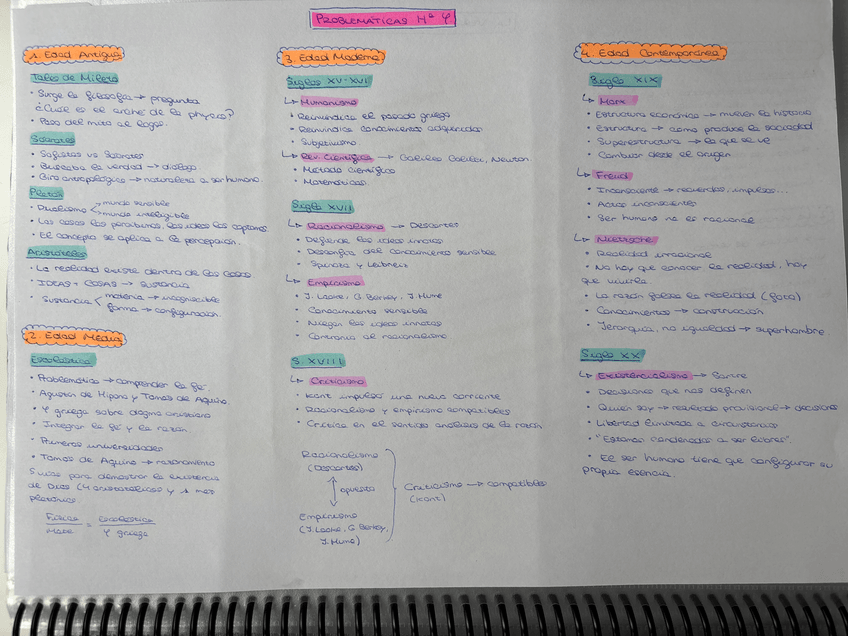 PROBLEMÁTICAS Hª φ
1. Edad Antigua
Tales de Mileto
• Surge la filosofía → pregunta
¿Cuál es el arche de la physis?
• Paso del mito al logos.
Sócrates
• Sofistas vs Sócrates
• Buscaba la verdad → diálogo
• Giro antropológico → naturaleza a ser humano.
Platón
• Dualismo mundo sensible
mundo inteligible
• Las cosas las percibimos, las ideas las captamos.
• El concepto se aplica a la percepción.
Aristóteles
• La realidad existe dentro de las cosas
• IDEAS + COSAS → sustancia
• Sustancia materia → incognoscible
forma → configuración.
2. Edad Media
Escolástica
• Problemática → comprender la fe.
• Agustín de Hipona y Tomás de Aquino.
• φ griega sobre dogma cristiano
• Integrar la fe y la razón.
• Primeras universidades
• Tomás de Aquino → razonamiento
5 vías para demostrar la existencia
de Dios (4 aristotélicas y 1 más
platónica.
Física / Mate = Escolástica / φ griega
3. Edad Moderna
Siglos XV-XVI
↳ Humanismo
• Reivindica el pasado griego
• Reivindica conocimientos adquiridos
• Subjetivismo
↳ Rev. Científica → Galileo Galilei, Newton.
• Método científico
• Matemáticas.
Siglo XVII
↳ Racionalismo → Descartes
• Defiende las ideas innatas
• Desconfía del conocimiento sensible
• Spinoza y Leibniz
↳ Empirismo
• J. Locke, G. Berkley, J. Hume
• Conocimiento sensible
• Niegan las ideas innatas
• Contrario al racionalismo
S. XVIII
↳ Criticismo
• Kant impulsó una nueva corriente
• Racionalismo y empirismo compatibles
• Crítica en el sentido análisis de la razón
Racionalismo
(Descartes)
opuesto
Criticismo → compatibles
(Kant)
Empirismo
(J. Locke, G Berkley,
J. Hume)
4. Edad Contemporánea
Siglo XIX
↳ Marx
• Estructura económica → mueven la historia
• Estructura → cómo produce la sociedad
• Superestructura → lo que se ve
• Cambiar desde el origen
↳ Freud
• Inconsciente → recuerdos, impulsos...
• Actos inconscientes
• Ser humano no es racional
↳ Nietzsche
• Realidad irracional
• No hay que conocer la realidad, hay
que vivirla
• La razón falsea la realidad (foto)
• Conocimientos → construcción
• Jerarquía, no igualdad → superhombre
Siglo XX
↳ Existencialismo → Sartre
• Decisiones que nos definen
• Quien soy → resultado provisional → decisiones
• Libertad limitada a circunstancias
• "Estamos condenados a ser libres".
• El ser humano tiene que configurar su
propia esencia.